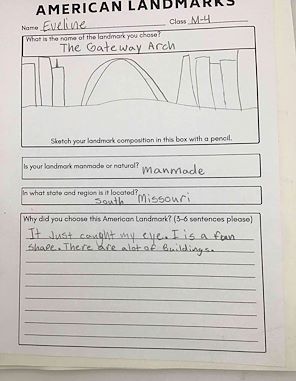 AMERICAN LANDMARKS
Name Eveline Class M-4
What is the name of the landmark you chose?
The Gateway Arch
Sketch your landmark composition in this box with a pencil.
Is your landmark manmade or natural? Manmade
In what state and region is it located?
South Missouri
Why did you choose this American Landmark? (3-6 sentences please)
It Just caught my eye. I is a fun
shape. There are alot of Buildings.